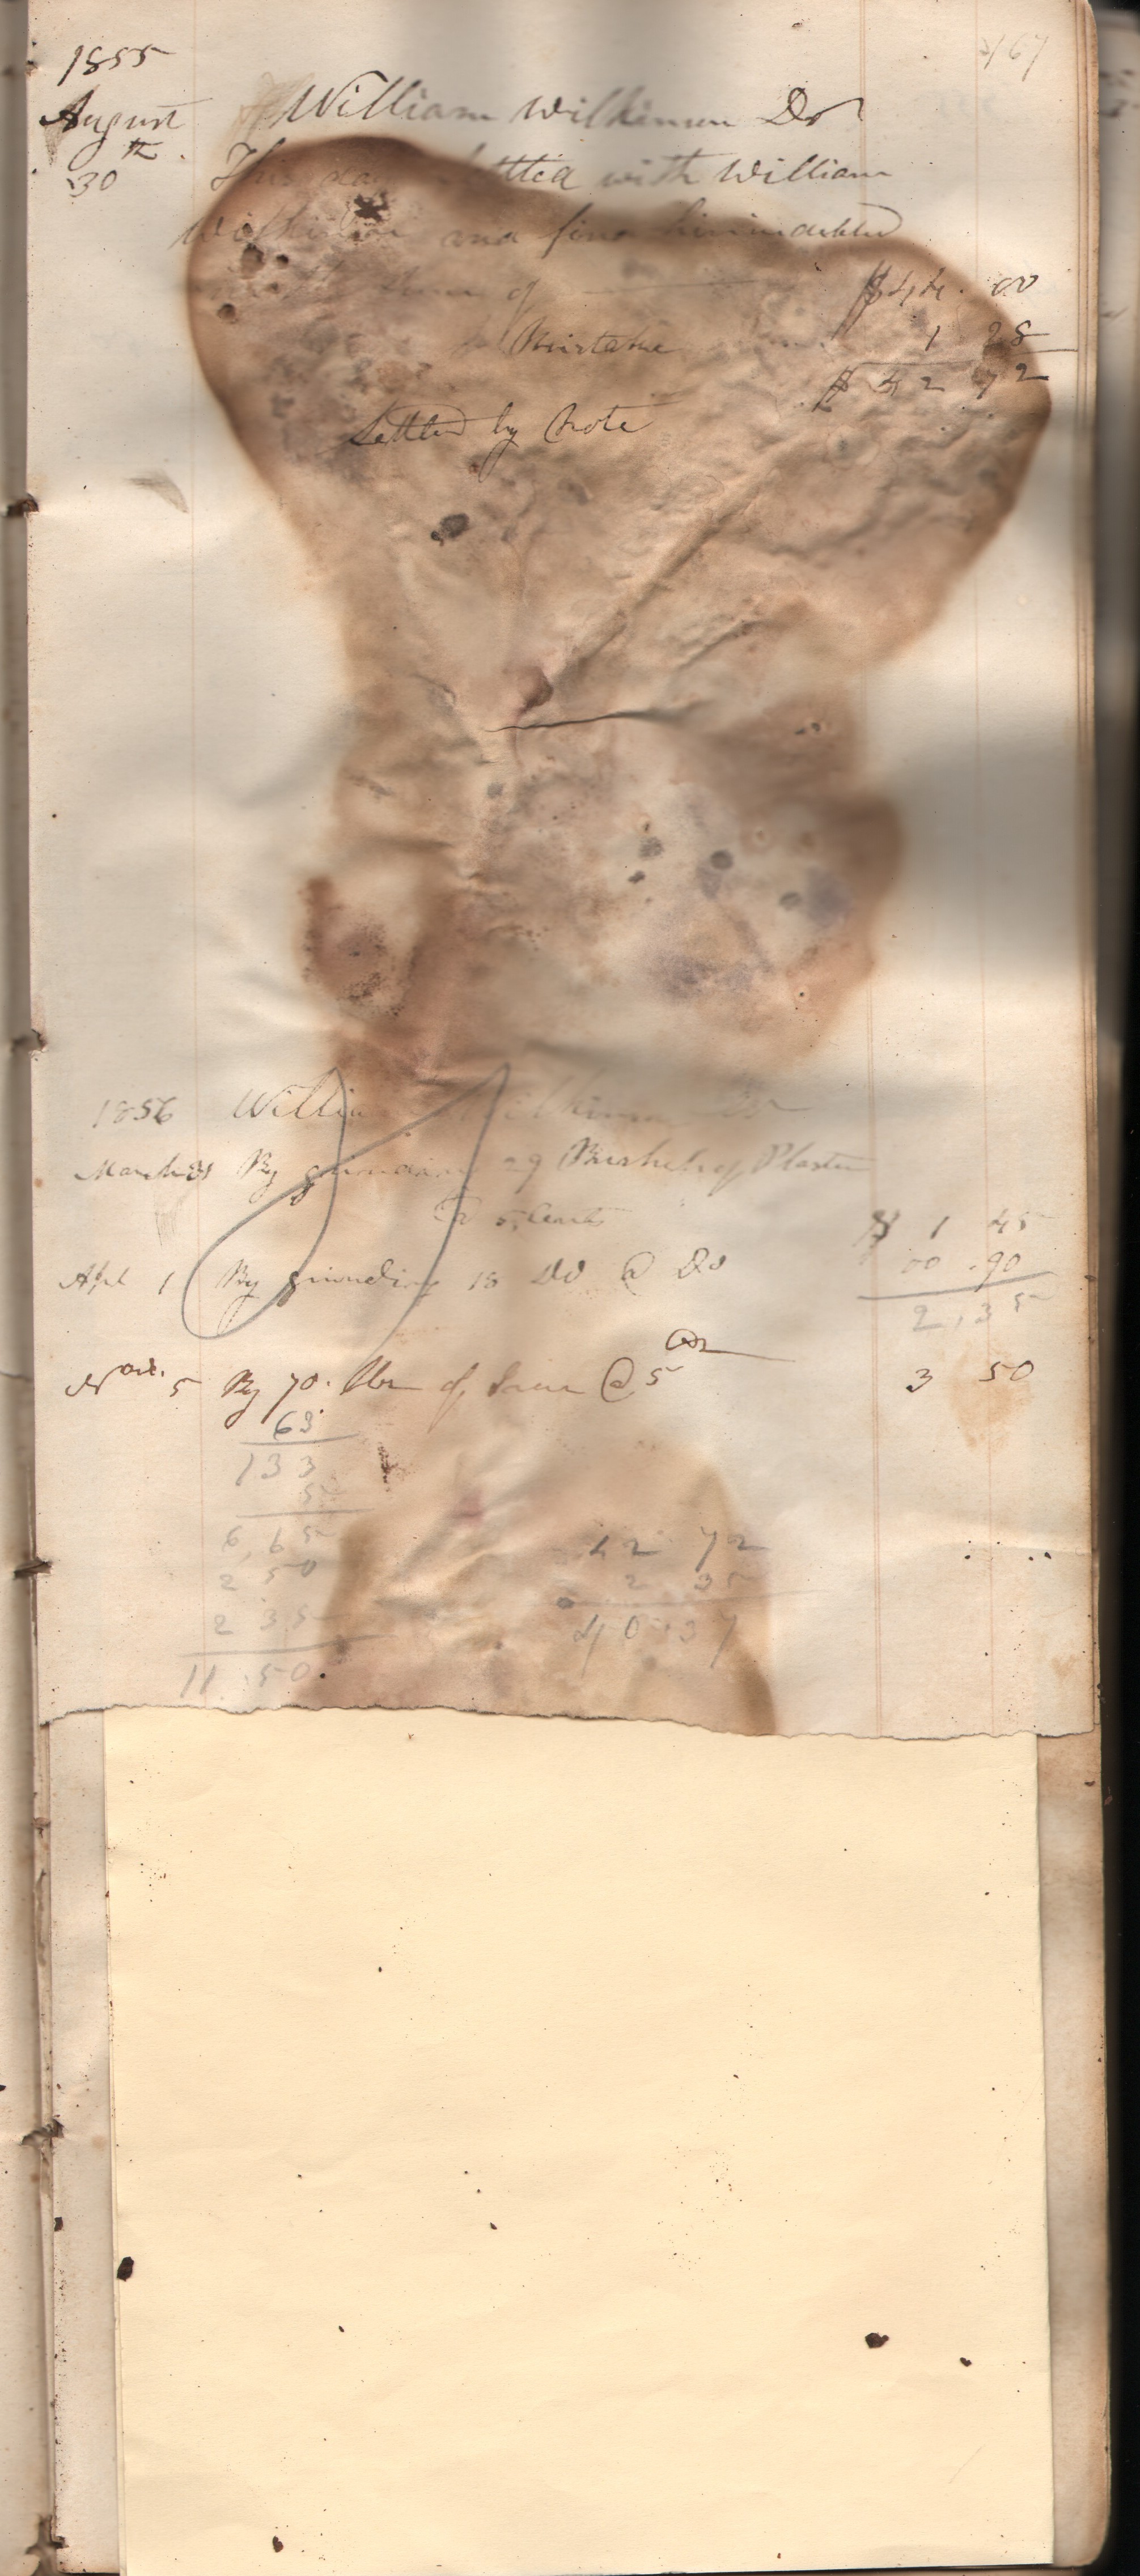 167
1855
August William Wilkinson Dr
30th This day settled with William
Wilkinson and find him indebted
the sum of $44.00
Mistake 1 28
$42 72
Settled by Note
1856 William Wilkinson Cr
March 31 By grinding 29 Bushels of Plaster
@ 5 Cents $ 1 45
Apl 1 By grinding 18 Do @ Do 00.90
2,35
5 By 70. lbs of @ 5 3 50
63
133
5
6,65
2 50
2 35
11.50
42 72
2 35
40.37